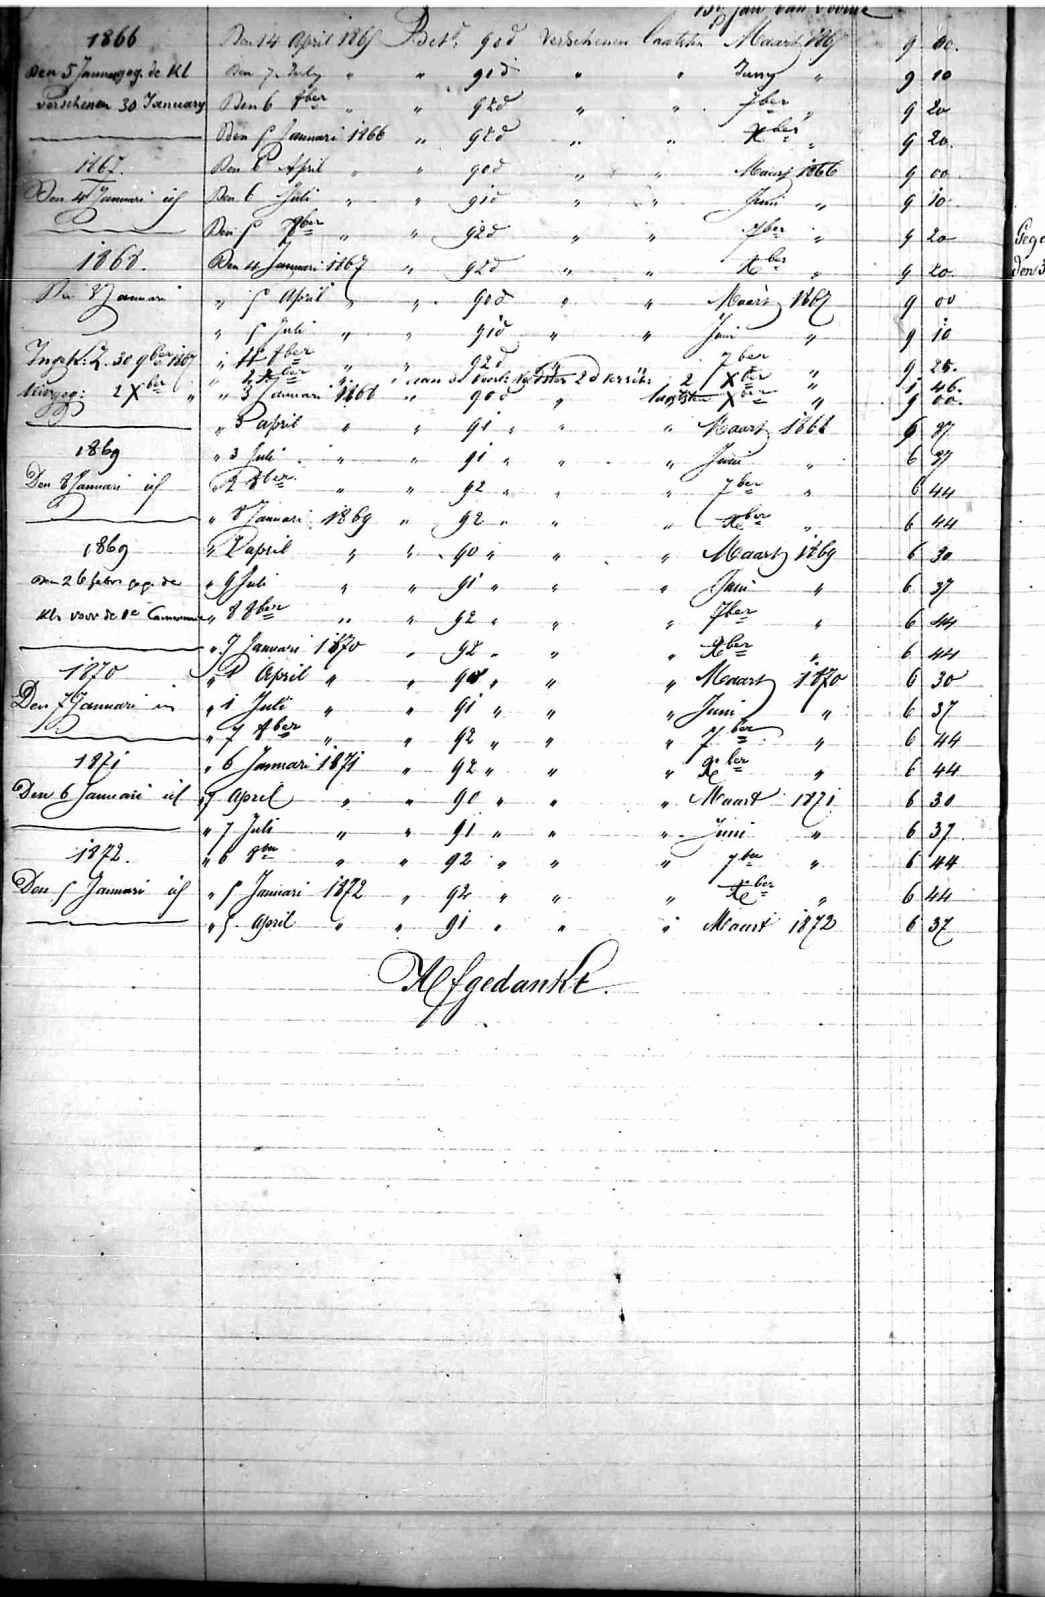 Jan van Voorne
1866 Den 14 April 1865 Bet. 90 d Verschenen laatsten Maart 1865 9 00.
Den 5 Januy geg. de Kl Den 7 July " " 91 d " " Juny " 9 10
verschenen 30 January Den 6 8ber " " 92 d " " 7ber " 9 20
Den 5 Januari 1866 " 92 d " " Xber " 9 20.
1867. Den 6 April " " 90 d " " Maart 1866 9 00
Den 4 Januari id Den 6 Juli " " 91 d " " Juni " 9 10
Den 5 8ber " " 92 d " " 7ber " 9 20
1868. Den 4 Januari 1867 " 92 d " " Xber " 9 20
Den 3 Januari " 5 April " " 90 d " " Maart 1867 9 00
" 5 Juli " " 91 d " " Juni " 9 10
" 4 8ber " " 92 d " " 7ber " 9 20.
Z. 30 9ber 1867 " 2 Xber " " aan 2 d 2 Xber " 1 46.
2 Xber " " 3 Januari 1868 " 90 d " laatsten Xber " 9 00.
" 3 april " " 91 " " " Maart 1868 6 37
1869 " 3 Juli " " 91 " " " Juni " 6 37
Den 8 Januari id " 2 8ber " " 92 " " " 7ber " 6 44
" 8 Januari 1869 " 92 " " " Xber " 6 44
1869 " 2 april " " 90 " " " Maart 1869 6 30
Den 26 febr geg. de " 9 Juli " " 91 " " " Juni " 6 37
Kl. voor de 1e " 8 8ber " " 92 " " " 7ber " 6 44
" 7 Januari 1870 " 92 " " " Xber " 6 44
1870 " 1 April " " 90 " " " Maart 1870 6 30
Den 7 Januari " 1 Juli " " 91 " " " Juni " 6 37
" 7 8ber " " 92 " " " 7ber " 6 44
1871 " 6 Januari 1871 " 92 " " " Xber " 6 44
Den 6 Januari id " 7 April " " 90 " " " Maart 1871 6 30
" 7 Juli " " 91 " " " Juni " 6 37
1872. " 6 8ber " " 92 " " " 7ber " 6 44
Den 5 Januari id " 5 Januari 1872 " 92 " " " Xber " 6 44
" 5 April " " 91 " " " Maart 1872 6 37
Afgedankt.